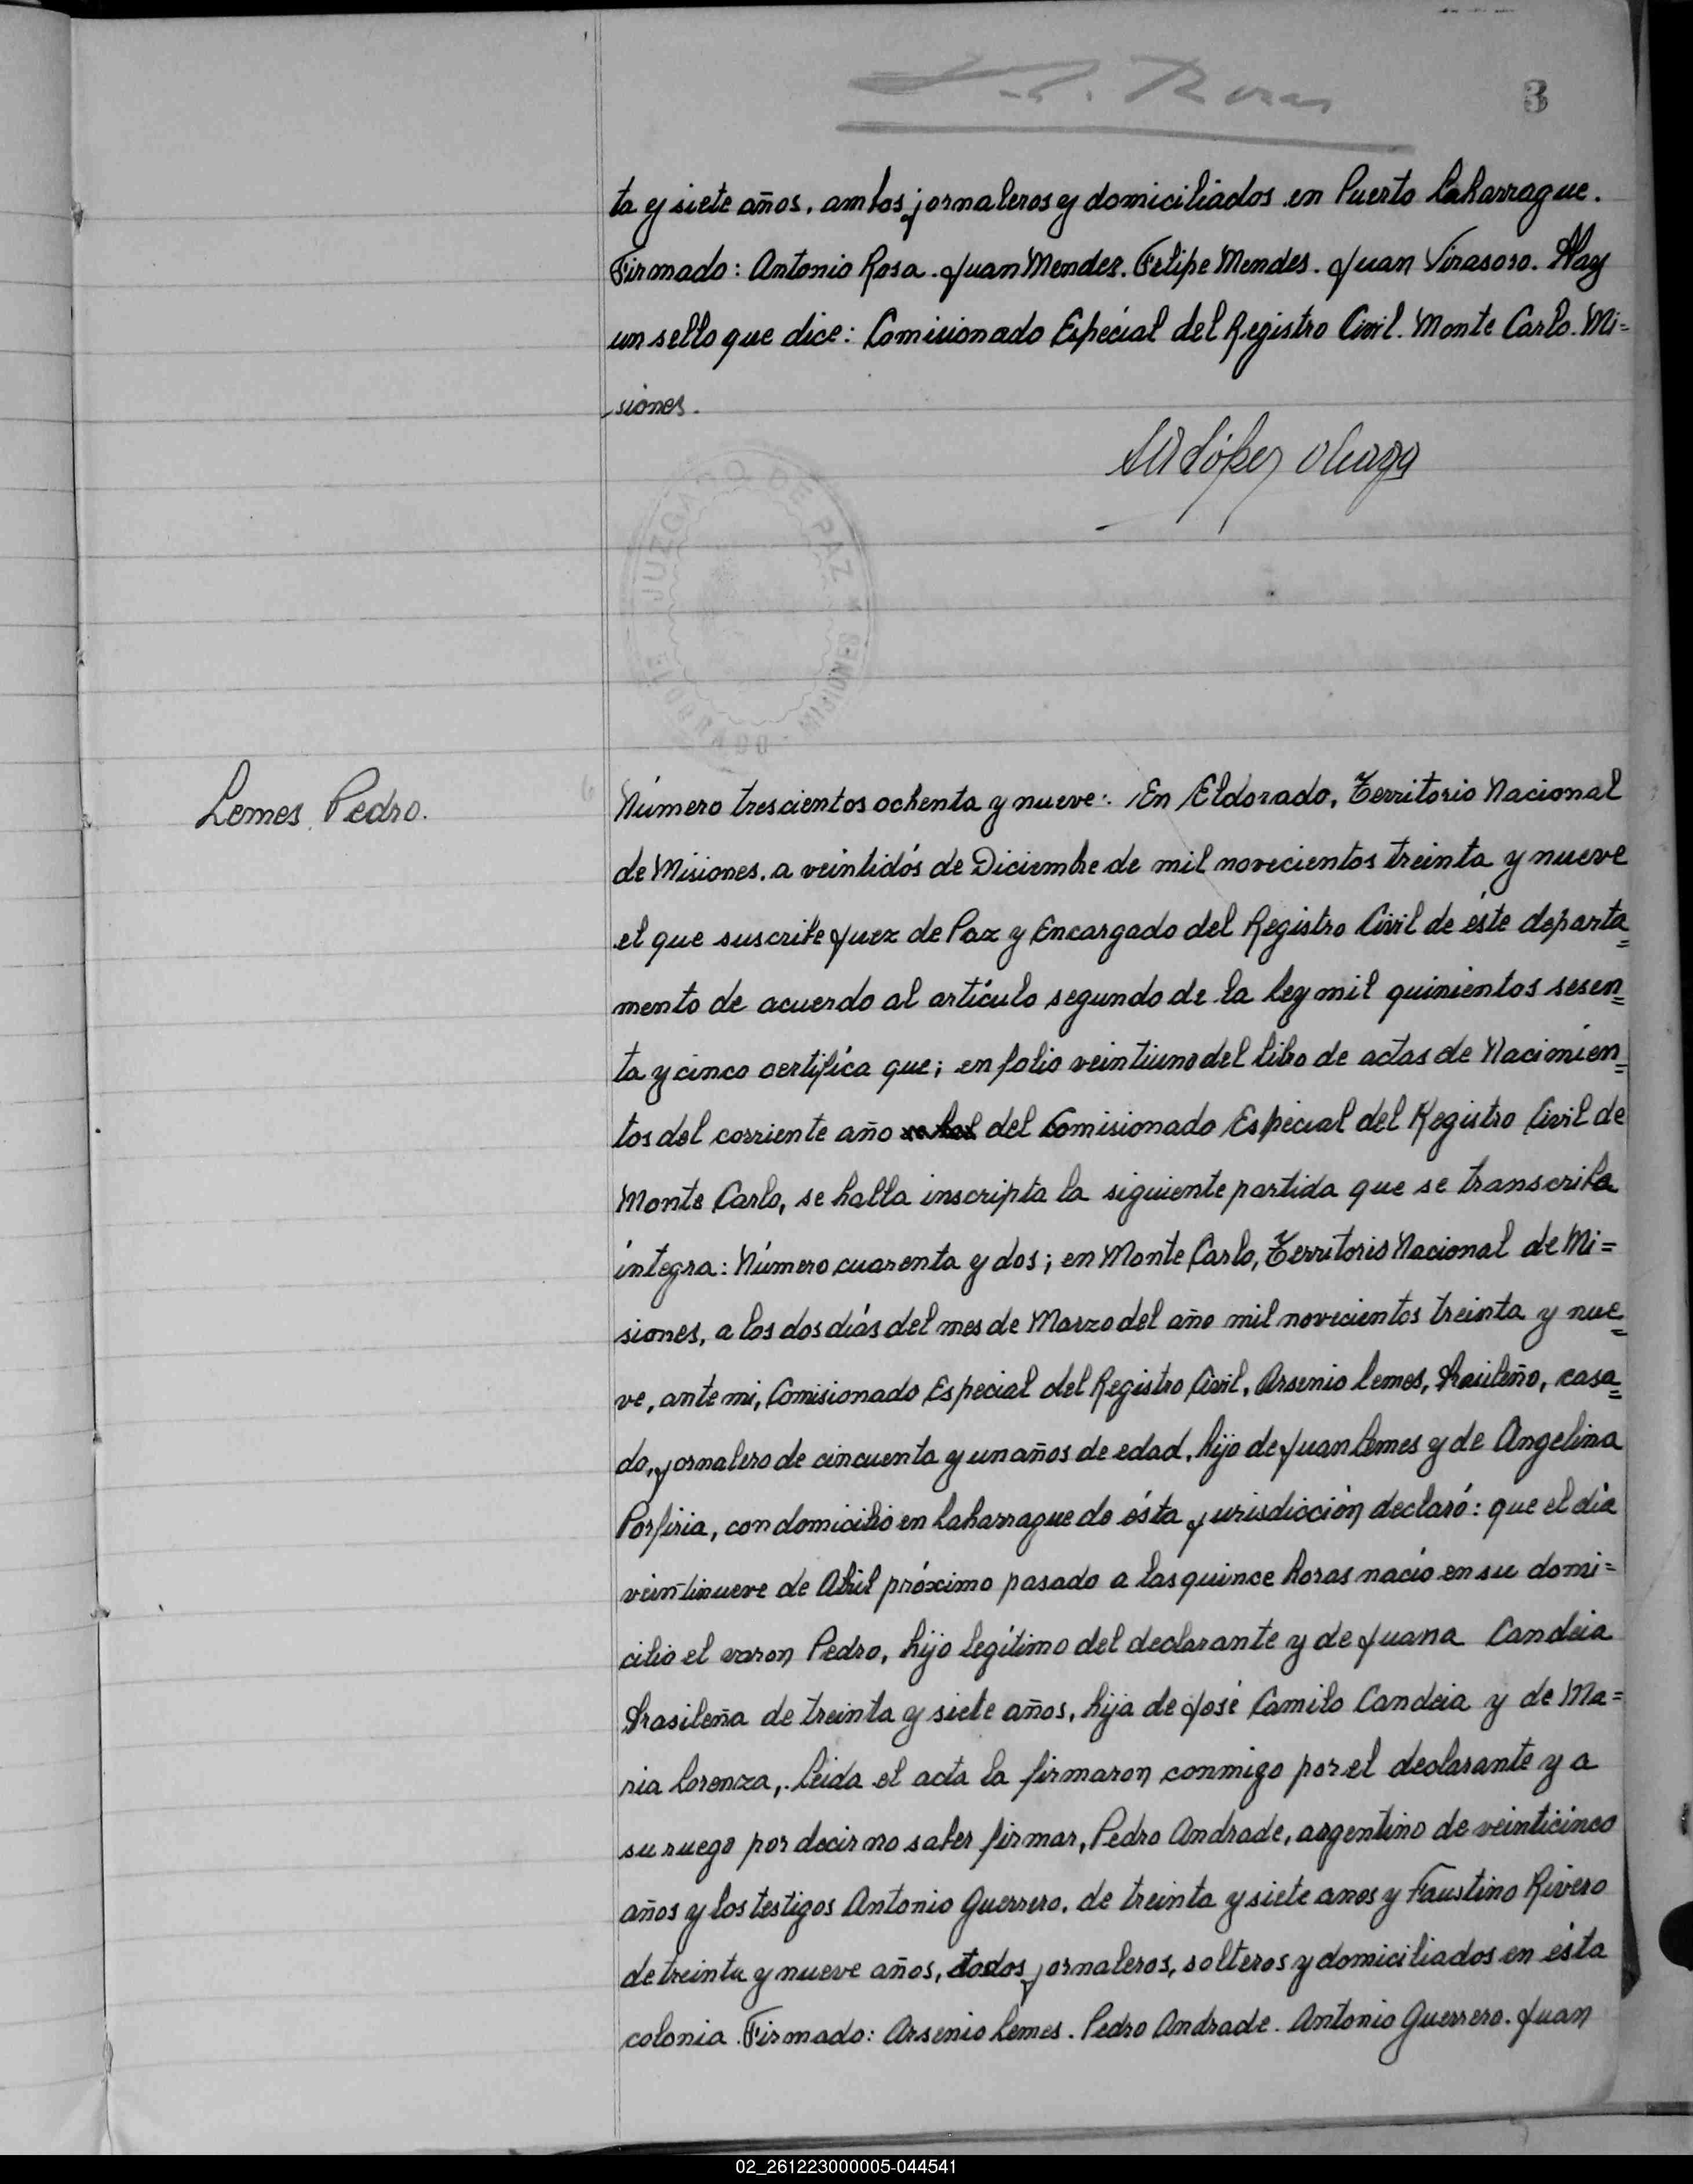 3
ta y siete años, ambos jornaleros y domiciliados en Puerto Laharrague.
Firmado: Antonio Rosa. Juan Mendez. Felipe Mendes. Juan Virasoro. Hay
un sello que dice: Comisionado Especial del Registro Civil. Monte Carlo. Mi=
siones.
JUZGADO DE PAZ
ELDORADO - MISIONES
Lemes Pedro.
Número trescientos ochenta y nueve: En Eldorado, Territorio Nacional
de Misiones. a veintidós de Diciembre de mil novecientos treinta y nueve
el que suscribe Juez de Paz y Encargado del Registro Civil de éste departa=
mento de acuerdo al artículo segundo de la ley mil quinientos sesen=
ta y cinco certifica que; en folio veintiuno del libro de actas de Nacimien=
tos del corriente año del Comisionado Especial del Registro Civil de
Monte Carlo, se halla inscripta la siguiente partida que se transcribe
íntegra: Número cuarenta y dos; en Monte Carlo, Territorio Nacional de Mi=
siones, a los dos días del mes de Marzo del año mil novecientos treinta y nue=
ve, ante mi, Comisionado Especial del Registro Civil, Arsenio Lemes, brasileño, casa=
do, jornalero de cincuenta y un años de edad, hijo de Juan Lemes y de Angelina
Porfiria, con domicilio en Laharrague de ésta jurisdicción declaró: que el día
veintinueve de Abril próximo pasado a las quince horas nació en su domi=
cilio el varon Pedro, hijo legítimo del declarante y de Juana Candeia
brasileña de treinta y siete años, hija de José Camilo Candeia y de Ma=
ria Lorenza,. Leida el acta la firmaron conmigo por el declarante y a
su ruego por decir no saber firmar, Pedro Andrade, argentino de veinticinco
años y los testigos Antonio Guerrero, de treinta y siete anos y Faustino Rivero
de treinta y nueve años, todos jornaleros, solteros y domiciliados en ésta
colonia. Firmado: Arsenio Lemes. Pedro Andrade. Antonio Guerrero. Juan
02_261223000005-044541